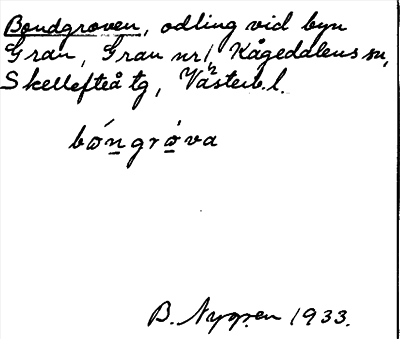 Bondgroven, odling vid byn
Gran, Gran nr 1, Kågedalens sn,
Skellefteå tg, Västerb. l.
bóngróva
B. Nygren 1933.